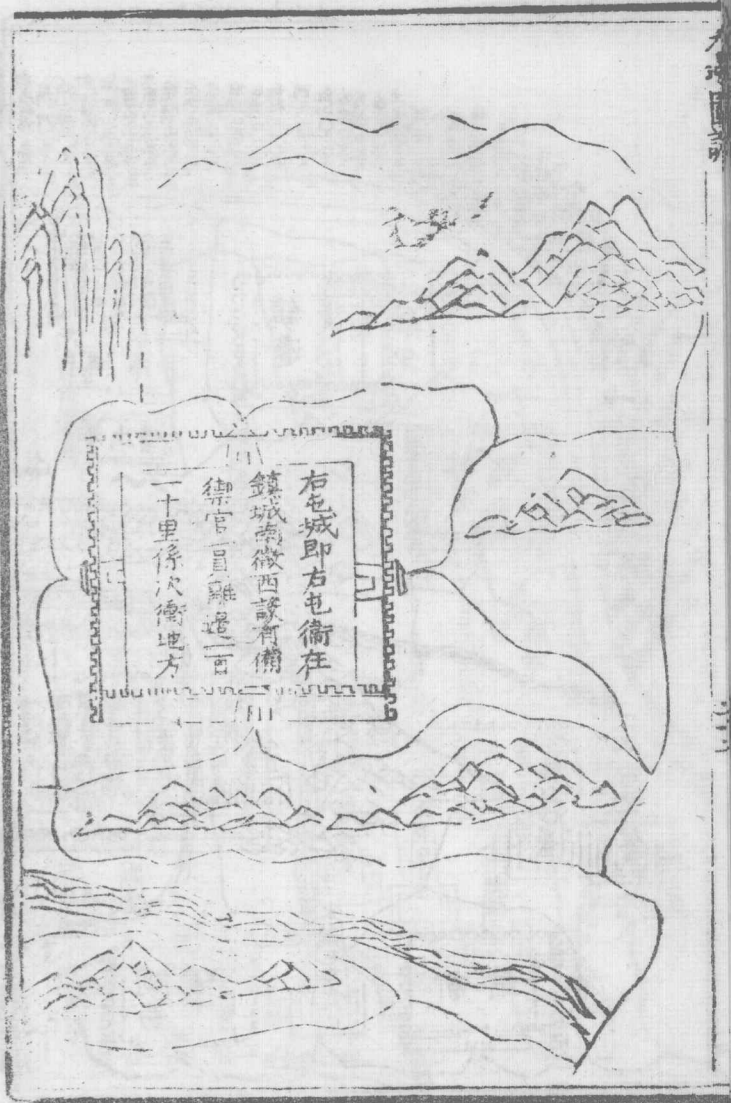 右屯城即右屯衞在
鎮城南微西設有備
禦官一員離邊二百
一十里係次衝地方